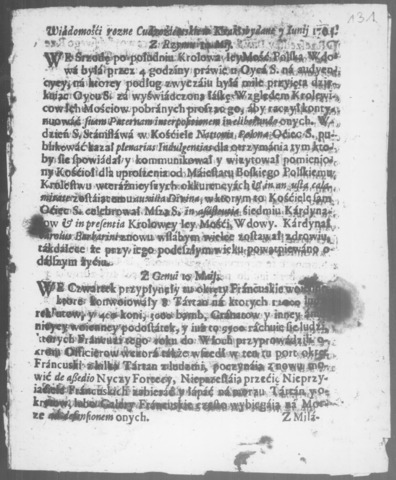 131
Wiadomośći rozne Cudzoźiemskie w Krakowie wydane 7 Iunij 1704.
Z Rzymu 10 Maij.
WE Srzodę po połudńiu Krolowa Iey Mość Polska Wdo-
wa była przez 4 godźiny práwie u Oyca S. ná audyen-
cyey, ná ktorey podług zwyczáiu byłá mile przyięta dźię-
kuiąc Oycu S. zá wyświádczoną łáskę względem Krolewi-
cow Ich Mościow pobránych prosząc go, áby raczył konty-
nuowáć suam Paternam interpositionem in liberando onych. W
dźień S. Stánisłáwá w Kośćiele Nationis Polonæ Oćiec S. pu-
blikowáć kazał plenarias Indulgentias dla otrzymánia tym kto-
by się spowiádał y kommunikował y wizytował pomienio-
ny Kośćioł dla uproszenia od Máiestatu Boskiego Polskiemu
Krolestwu w teráźnieyszych okkurencyách & in an usta cala-
mitate zostáiącemu auxilia Divina, w ktorym to Kośćiele sam
Oćiec S. celebrował Mszą S. in assistentia śiedmiu Kárdyná-
łow & in præsentia Krolowey Iey Mośći, Wdowy. Kárdynał
Carolus Barberini znowu w słábym wielce zostawał zdrowiu
tákdálece że przy iego podeszłym wieku powątpiewáno o
dálszym żyćiu.
Z Genui 10 Maij.
WE Czwartek przypłynęły tu okręty Fráncuskie
ktore konwoiowały 8 Tártan ná ktorych 12000
y 400 koni, 5000 bomb, Gránatow y inney
nicyey woienney podostátek, y iuż to 5500 ráchuie się ludźi
ktorych Fráncuźi tego roku do Włoch przyprowádźili
Officierow wczorá tákże wszedł w ten tu port okręt
Fráncuski z kilką Tártan z ludami, poczynáią znowu mo-
wić de assedio Nyczy Fortecy, Nieprzestáią przećię Nieprzy-
iaćiele Fráncuskich zábieráć y łápáć ná morzu Tártan y o-
krętow, lubo Gálery Fráncuskie często wybiegáią ná Mo-
rze ad defensionem onych.
Z Milá-